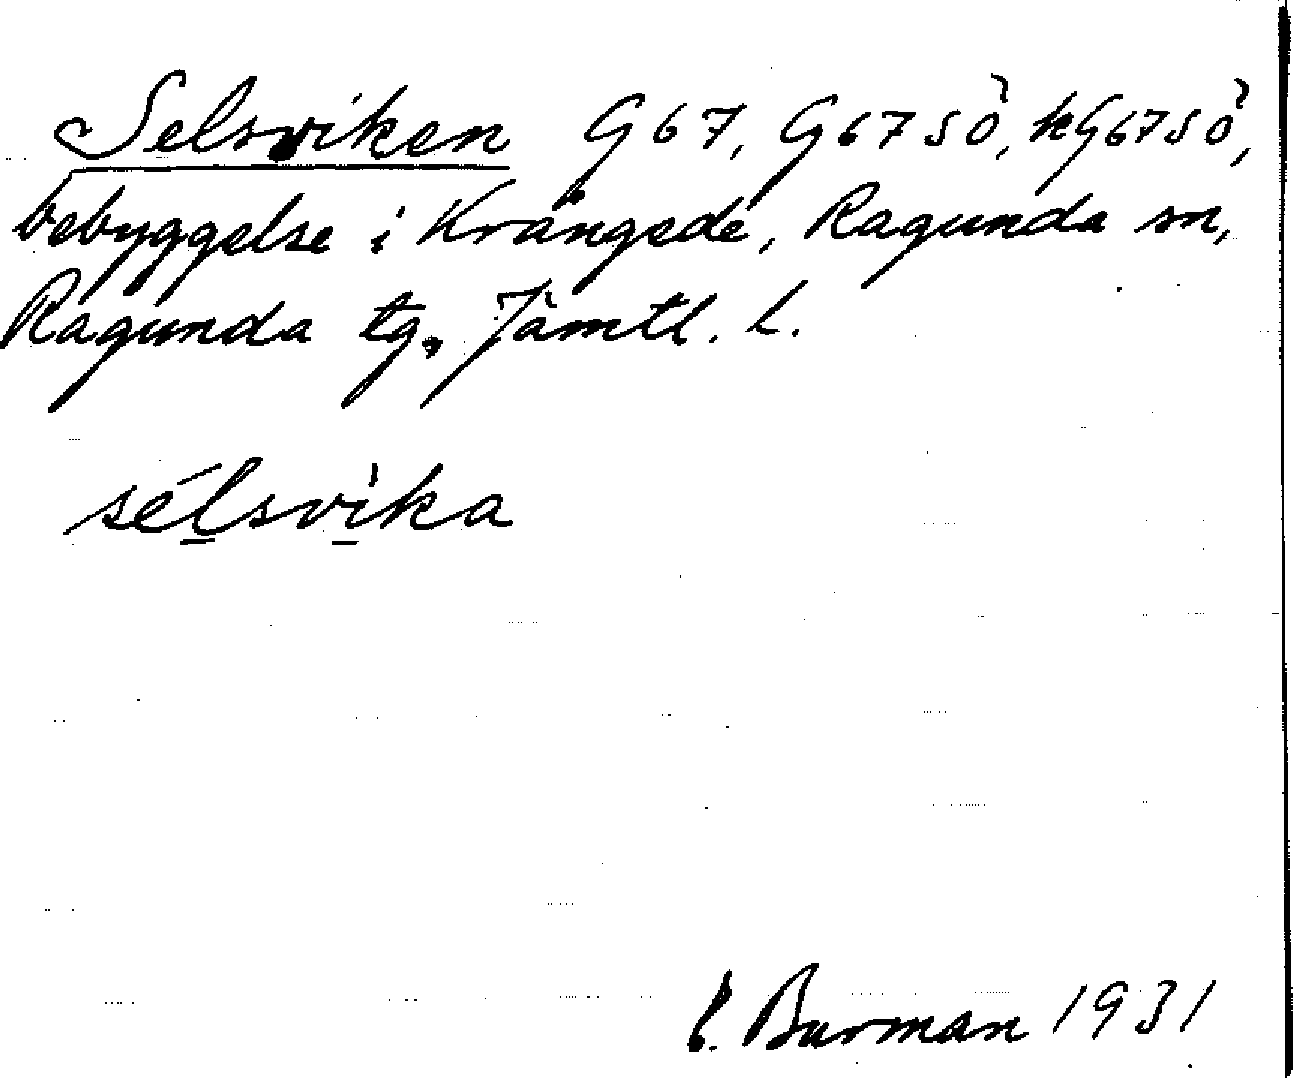 Selsviken G67, G67SÖ, kG67SÖ,
bebyggelse i Krångede, Ragunda sn,
Ragunda tg, Jämtl. L.
sélsvìka
E. Burman 1931